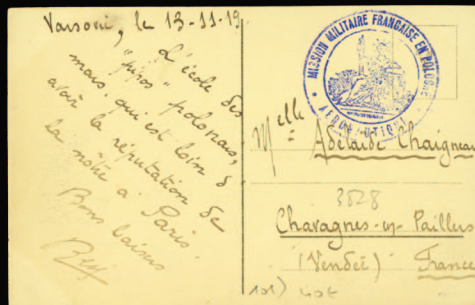 Varsovie, le 13-11-19
L'école des
"pipos" polonais,
mais, qui est loin d
avoir la réputation de
la nôtre à Paris.
Bons baisers
MISSION MILITAIRE FRANÇAISE EN POLOGNE
AÉRONAUTIQUE
Melle
Adélaïde Chaigneau
3828
Chavagnes-en-Paillers
(Vendée) France